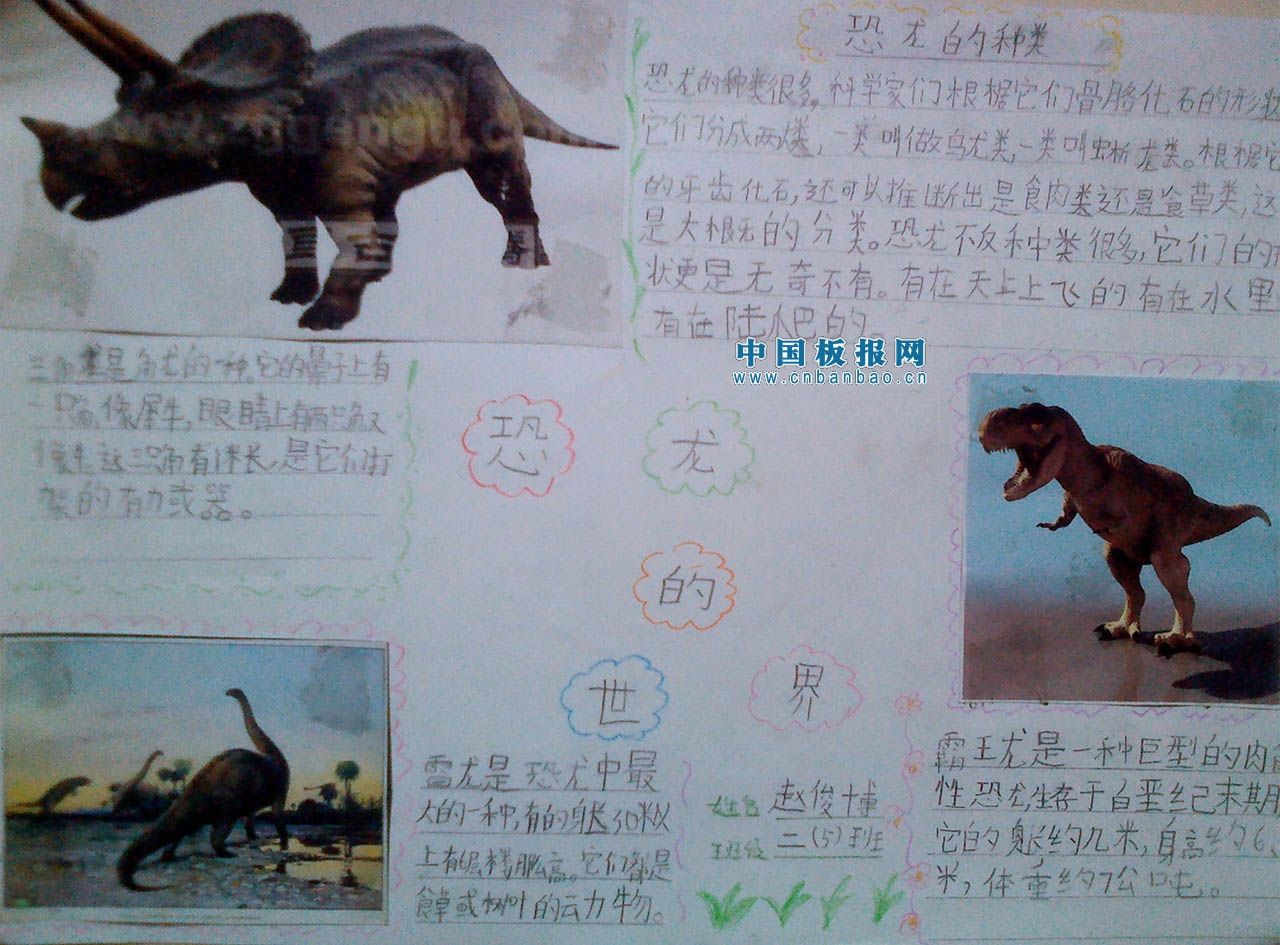 恐龙的种类
恐龙的种类很多,科学家们根椐它们骨胳化石的形状
它们分成两类,一类叫做鸟龙类,一类叫蜥龙类。根椐它
的牙齿化石,还可以推断出是食肉类还是食草类,这
是大概的分类。恐龙不反种类很多,它们的形
状更是无奇不有。有在天上上飞的有在水里
有在陆爬的。
中国板报网
www.cnbanbao.cn
三角龙是角龙的一种。它的鼻子上有
一只角,像犀牛,眼睛上有两只角又
这三只角有1米长,是它们打
架的有力武器。
恐龙
的
世界
雷龙是恐龙中最
大的一种,有的身长30米以
上有层楼那么高。它们都是
食草或树叶的动物。
姓名 赵俊博
班级 二(5)班
霸王龙是一种巨型的肉食
性恐龙,生存于白垩纪末期
它的身长约几米,身高约6
米,体重约7公吨。